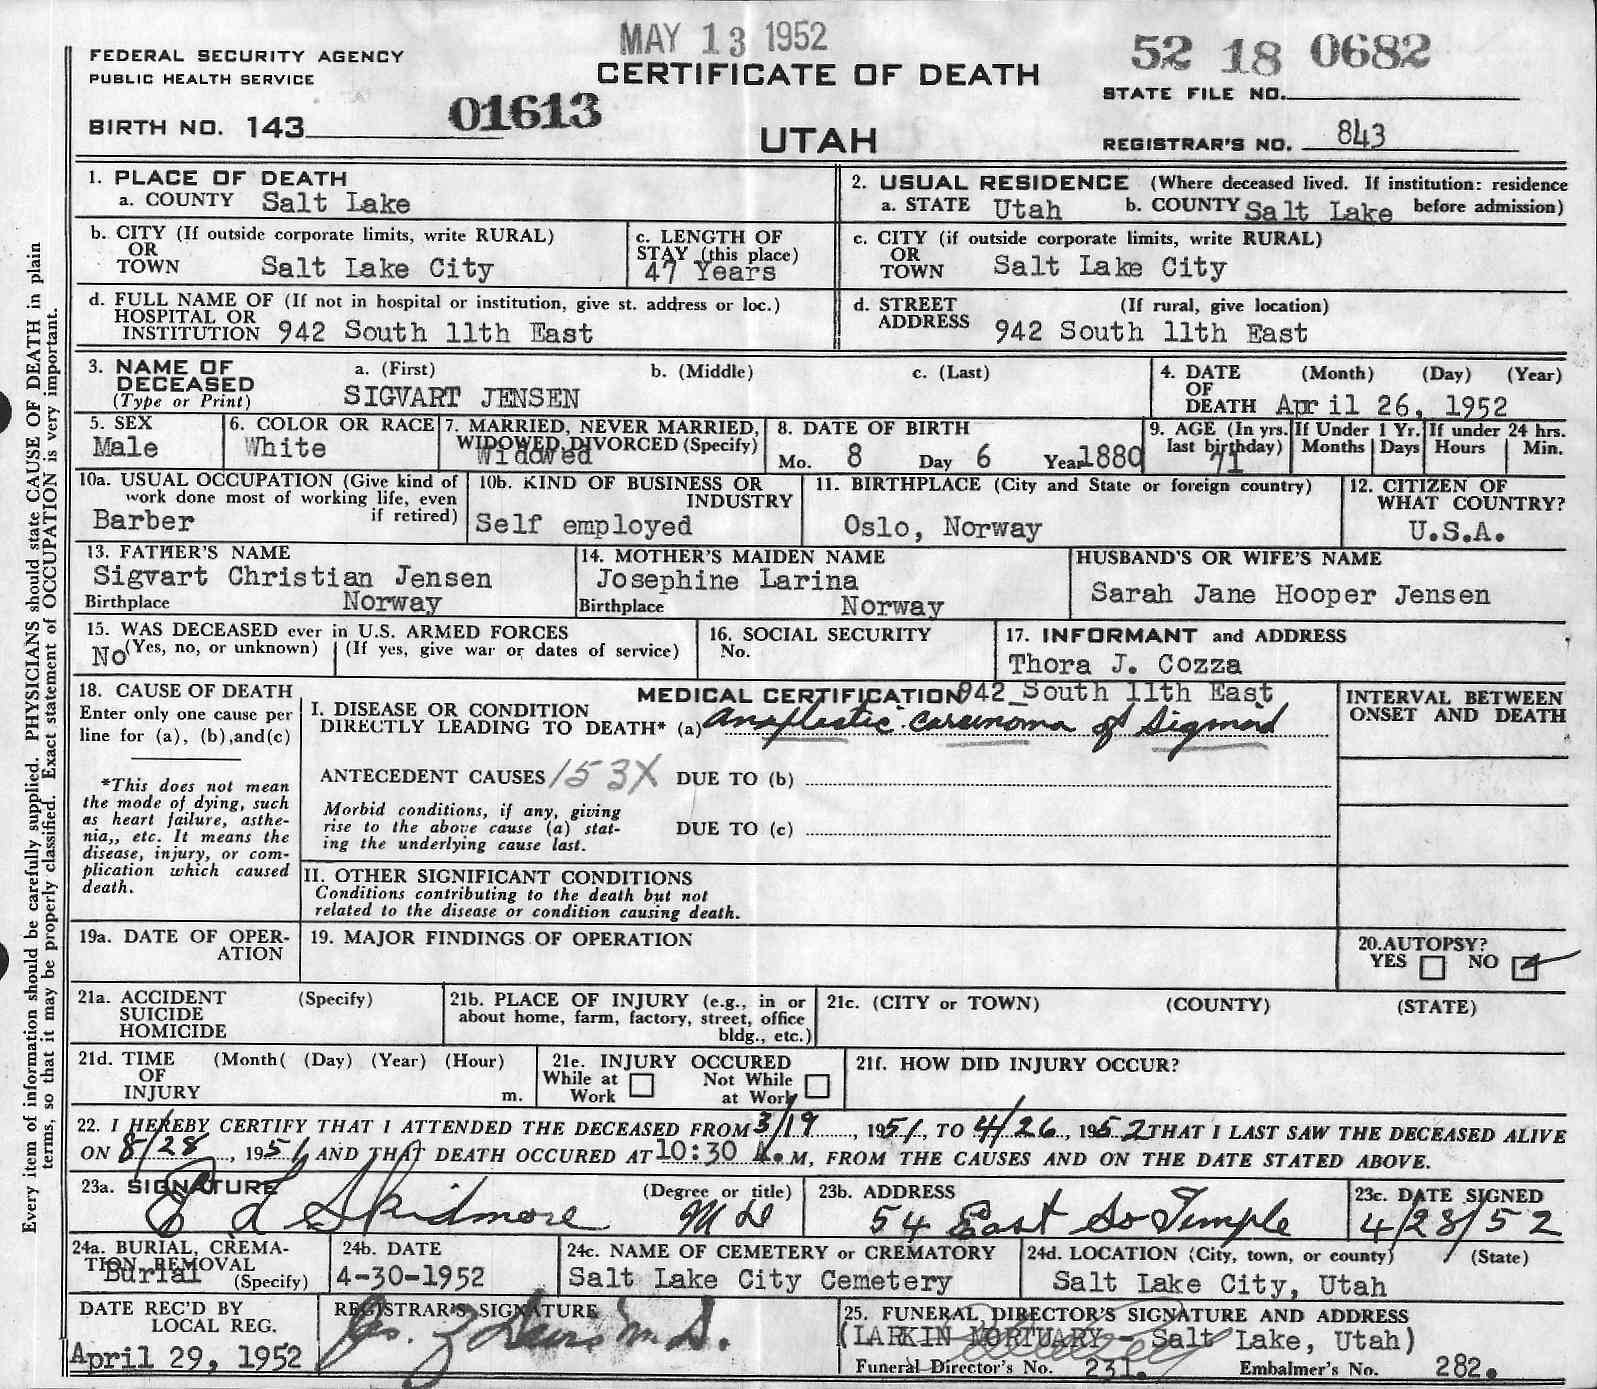 MAY 13 1952
52 18 0682
FEDERAL SECURITY AGENCY
PUBLIC HEALTH SERVICE
CERTIFICATE OF DEATH
STATE FILE NO.
BIRTH NO. 143
01613
UTAH
REGISTRAR'S NO. 843
Every item of information should be carefully supplied. PHYSICIANS should state CAUSE OF DEATH in plain
terms, so that it may be properly classified. Exact statement of OCCUPATION is very important.
1. PLACE OF DEATH
a. COUNTY Salt Lake
2. USUAL RESIDENCE (Where deceased lived. If institution: residence
a. STATE Utah b. COUNTY Salt Lake before admission)
b. CITY (If outside corporate limits, write RURAL)
OR
TOWN Salt Lake City
c. LENGTH OF
STAY (this place)
47 Years
c. CITY (if outside corporate limits, write RURAL)
OR
TOWN Salt Lake City
d. FULL NAME OF (If not in hospital or institution, give st. address or loc.)
HOSPITAL OR
INSTITUTION 942 South 11th East
d. STREET (If rural, give location)
ADDRESS 942 South 11th East
3. NAME OF a. (First) b. (Middle) c. (Last)
DECEASED
(Type or Print) SIGVART JENSEN
4. DATE (Month) (Day) (Year)
OF
DEATH April 26, 1952
5. SEX
Male
6. COLOR OR RACE
White
7. MARRIED, NEVER MARRIED,
WIDOWED, DIVORCED (Specify)
Widowed
8. DATE OF BIRTH
Mo. 8 Day 6 Year 1880
9. AGE (In yrs.
last birthday)
71
If Under 1 Yr.
Months Days
If under 24 hrs.
Hours Min.
10a. USUAL OCCUPATION (Give kind of
work done most of working life, even
if retired)
Barber
10b. KIND OF BUSINESS OR
INDUSTRY
Self employed
11. BIRTHPLACE (City and State or foreign country)
Oslo, Norway
12. CITIZEN OF
WHAT COUNTRY?
U.S.A.
13. FATHER'S NAME
Sigvart Christian Jensen
Birthplace Norway
14. MOTHER'S MAIDEN NAME
Josephine Larina
Birthplace Norway
HUSBAND'S OR WIFE'S NAME
Sarah Jane Hooper Jensen
15. WAS DECEASED ever in U.S. ARMED FORCES
No (Yes, no, or unknown) (If yes, give war or dates of service)
16. SOCIAL SECURITY
No.
17. INFORMANT and ADDRESS
Thora J. Cozza
942 South 11th East
18. CAUSE OF DEATH
Enter only one cause per
line for (a), (b),and(c)
*This does not mean
the mode of dying, such
as heart failure, asthe-
nia,, etc. It means the
disease, injury, or com-
plication which caused
death.
MEDICAL CERTIFICATION
I. DISEASE OR CONDITION
DIRECTLY LEADING TO DEATH* (a) Anaplastic Carcinoma of Sigmoid
ANTECEDENT CAUSES 153X DUE TO (b)
Morbid conditions, if any, giving
rise to the above cause (a) stat-
ing the underlying cause last.
DUE TO (c)
II. OTHER SIGNIFICANT CONDITIONS
Conditions contributing to the death but not
related to the disease or condition causing death.
INTERVAL BETWEEN
ONSET AND DEATH
19a. DATE OF OPER-
ATION
19. MAJOR FINDINGS OF OPERATION
20.AUTOPSY?
YES NO
21a. ACCIDENT (Specify)
SUICIDE
HOMICIDE
21b. PLACE OF INJURY (e.g., in or
about home, farm, factory, street, office
bldg., etc.)
21c. (CITY or TOWN) (COUNTY) (STATE)
21d. TIME (Month( (Day) (Year) (Hour)
OF
INJURY m.
21e. INJURY OCCURED
While at Not While
Work at Work
21f. HOW DID INJURY OCCUR?
22. I HEREBY CERTIFY THAT I ATTENDED THE DECEASED FROM 3/19, 1951, TO 4/26, 1952 THAT I LAST SAW THE DECEASED ALIVE
ON 8/28, 1951 AND THAT DEATH OCCURED AT 10:30 A.M, FROM THE CAUSES AND ON THE DATE STATED ABOVE.
23a. SIGNATURE (Degree or title)
E L Skidmore M D
23b. ADDRESS
54 East So Temple
23c. DATE SIGNED
4/28/52
24a. BURIAL, CREMA-
TION, REMOVAL
Burial (Specify)
24b. DATE
4-30-1952
24c. NAME OF CEMETERY or CREMATORY
Salt Lake City Cemetery
24d. LOCATION (City, town, or county) (State)
Salt Lake City, Utah
DATE REC'D BY
LOCAL REG.
April 29, 1952
REGISTRAR'S SIGNATURE
M.D.
25. FUNERAL DIRECTOR'S SIGNATURE AND ADDRESS
(LARKIN MORTUARY - Salt Lake, Utah)
Funeral Director's No. 231. Embalmer's No. 282.